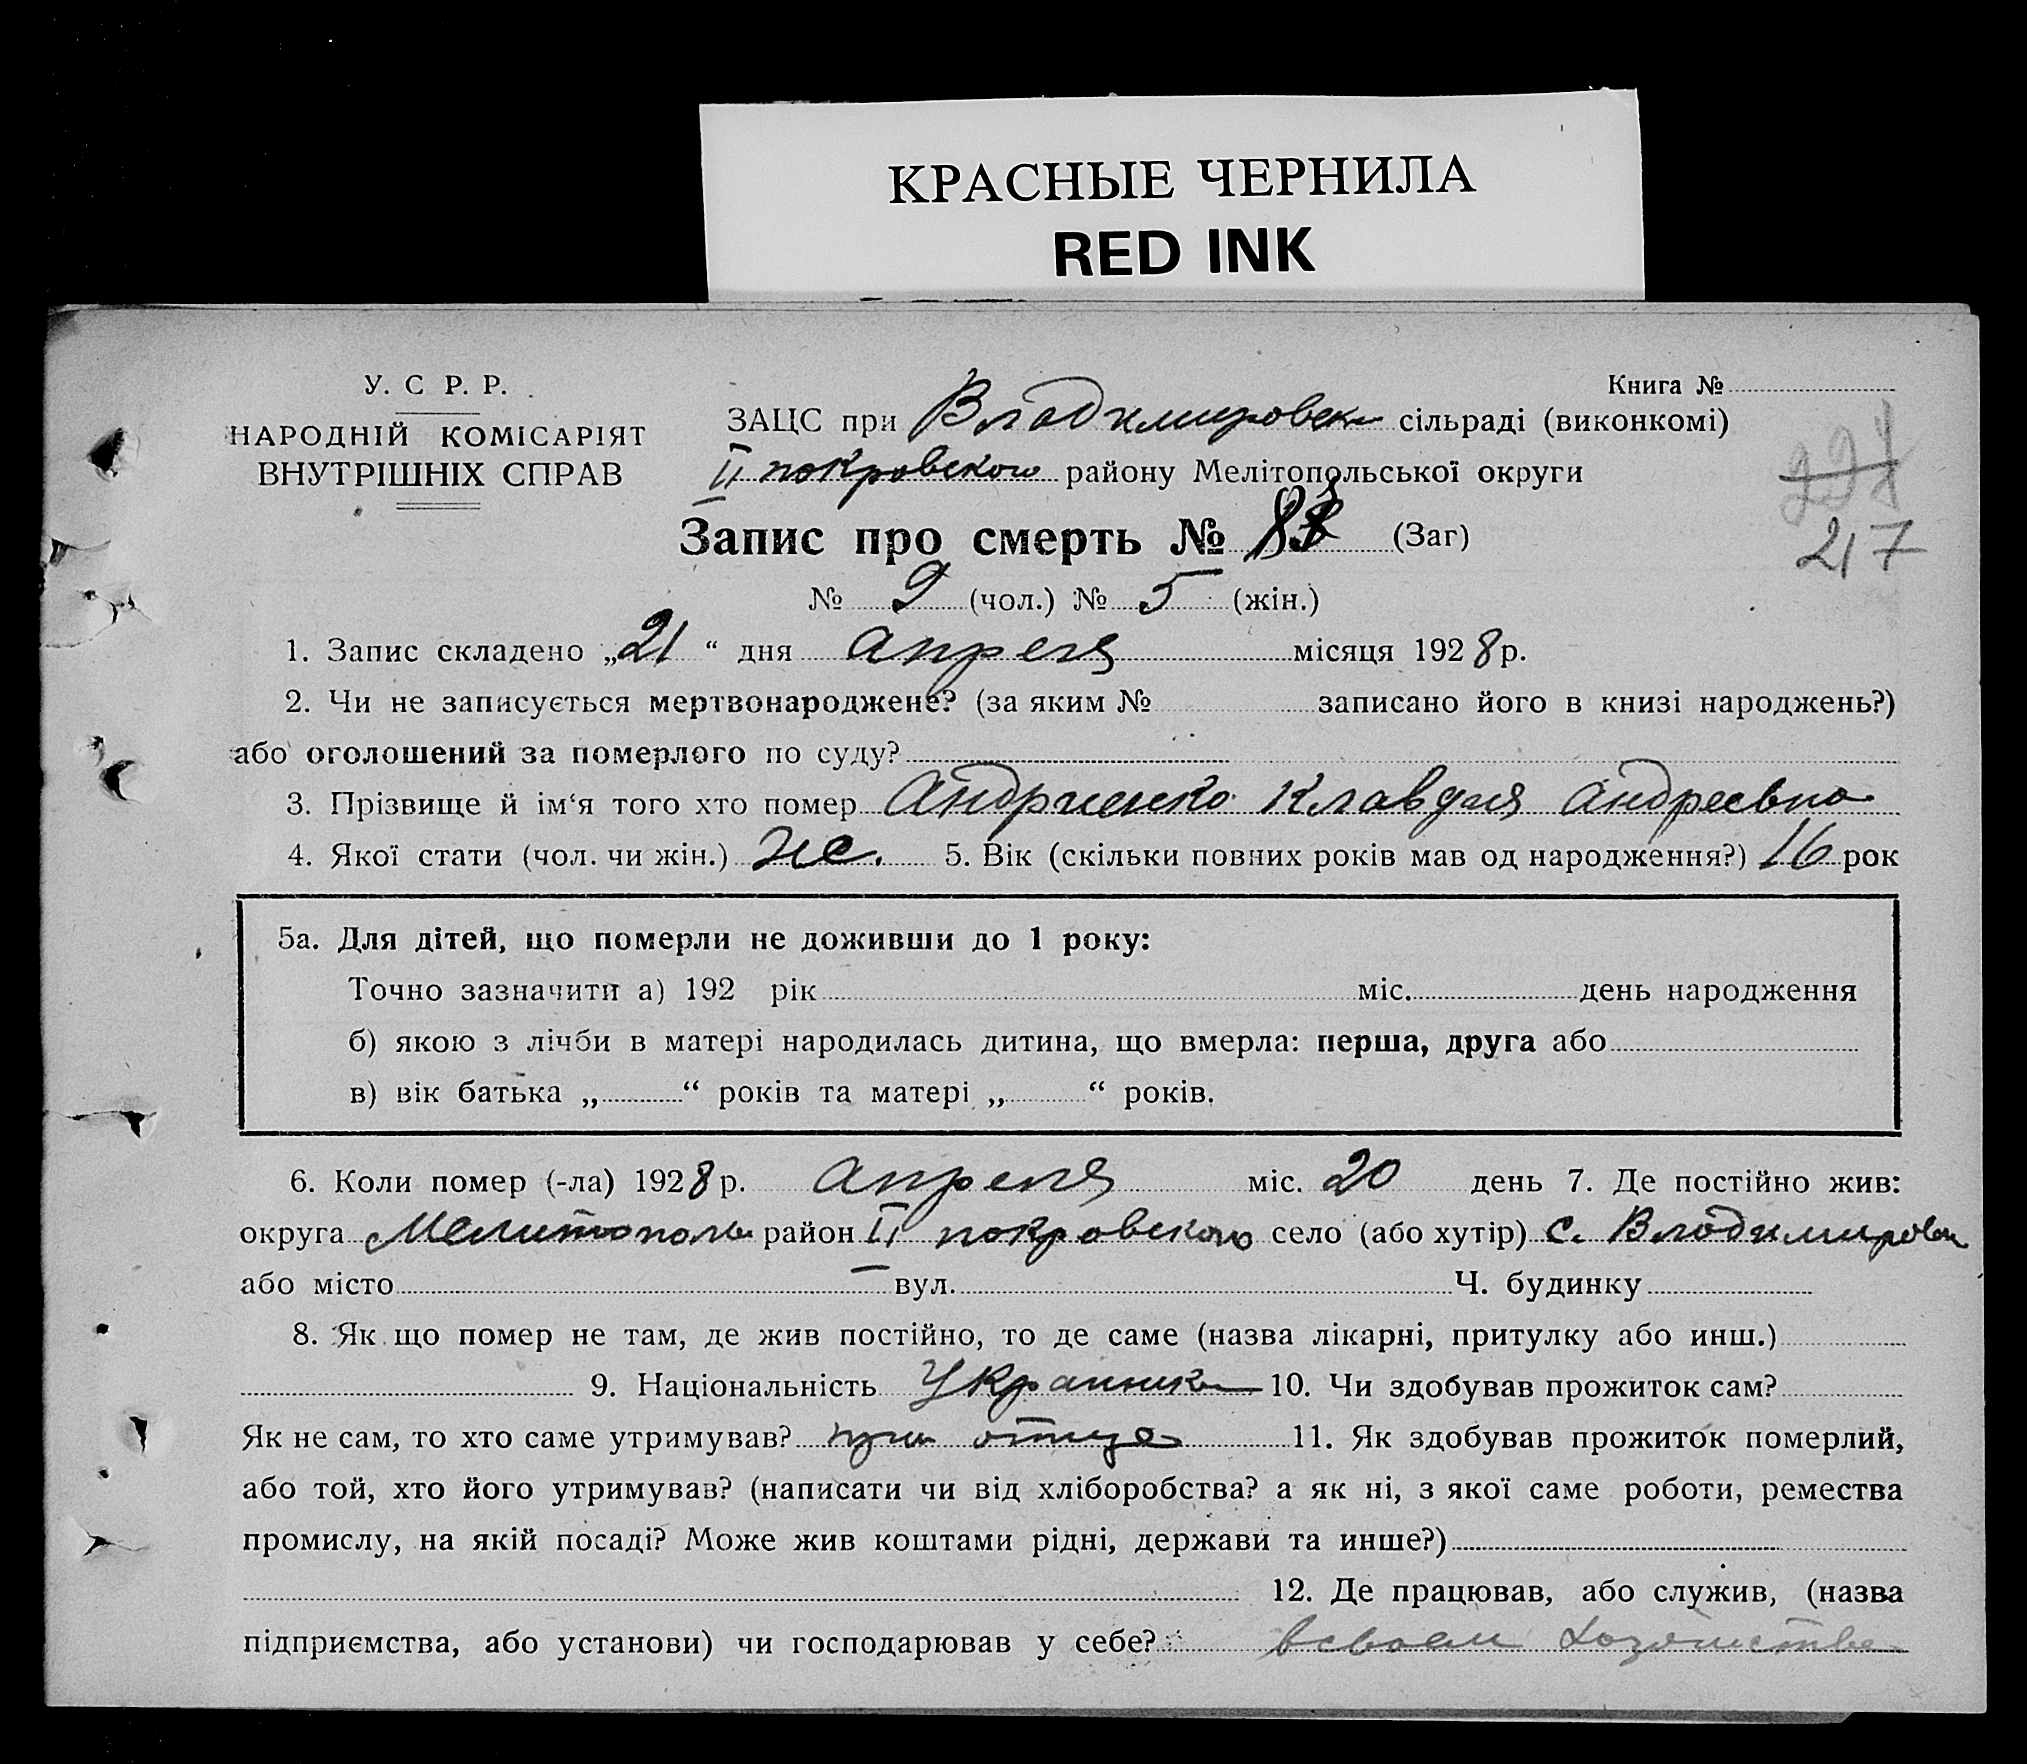 КРАСНЫЕ ЧЕРНИЛА
RED INK
У. С Р. Р.
НАРОДНІЙ КОМІСАРІЯТ
ВНУТРІШНІХ СПРАВ
Книга №
ЗАЦС при Владимировск сільраді (виконкомі)
II покровского району Мелітопольської округи
217
Запис про смерть № (Заг)
№ 9 (чол.) № 5 (жін.)
1. Запис складено „21“ дня апреля місяця 1928 р.
2. Чи не записується мертвонароджене? (за яким № записано його в книзі народжень?)
або оголошений за померлого по суду?
3. Прізвище й ім‘я того хто помер Андриенко Клавдия Андреевна
4. Якої стати (чол. чи жін.) 5. Вік (скільки повних років мав од народження?) 16 рок
5а. Для дітей, що померли не доживши до 1 року:
Точно зазначити а) 192 рік міс. день народження
б) якою з лічби в матері народилась дитина, що вмерла: перша, друга або
в) вік батька „ “ років та матері „ “ років.
6. Коли помер (-ла) 1928 р. апреля міс. 20 день 7. Де постійно жив:
округа Мелитополь район II покровского село (або хутір) с. Владимировк
або місто вул. Ч. будинку
8. Як що помер не там, де жив постійно, то де саме (назва лікарні, притулку або инш.)
9. Національність Украинка 10. Чи здобував прожиток сам?
Як не сам, то хто саме утримував? при отце 11. Як здобував прожиток померлий,
або той, хто його утримував? (написати чи від хліборобства? а як ні, з якої саме роботи, ремества
промислу, на якій посаді? Може жив коштами рідні, держави та инше?)
12. Де працював, або служив, (назва
підприємства, або установи) чи господарював у себе? в своем хозяистве